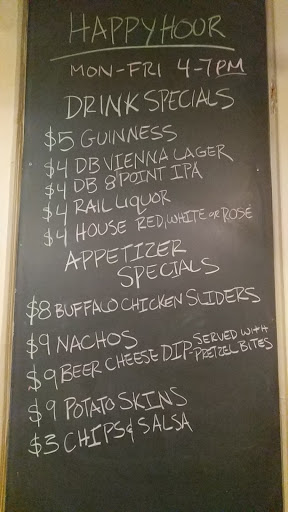 HAPPY HOUR
MON-FRI 4-7PM
DRINK SPECIALS
$5 GUINNESS
$4 DB VIENNA LAGER
$4 DB 8 POINT IPA
$4 RAIL LIQUOR
$4 HOUSE RED, WHITE OR ROSE
APPETIZER
SPECIALS
$8 BUFFALO CHICKEN SLIDERS
$9 NACHOS
$9 BEER CHEESE DIP - SERVED WITH
PRETZEL BITES
$9 POTATO SKINS
$3 CHIPS & SALSA